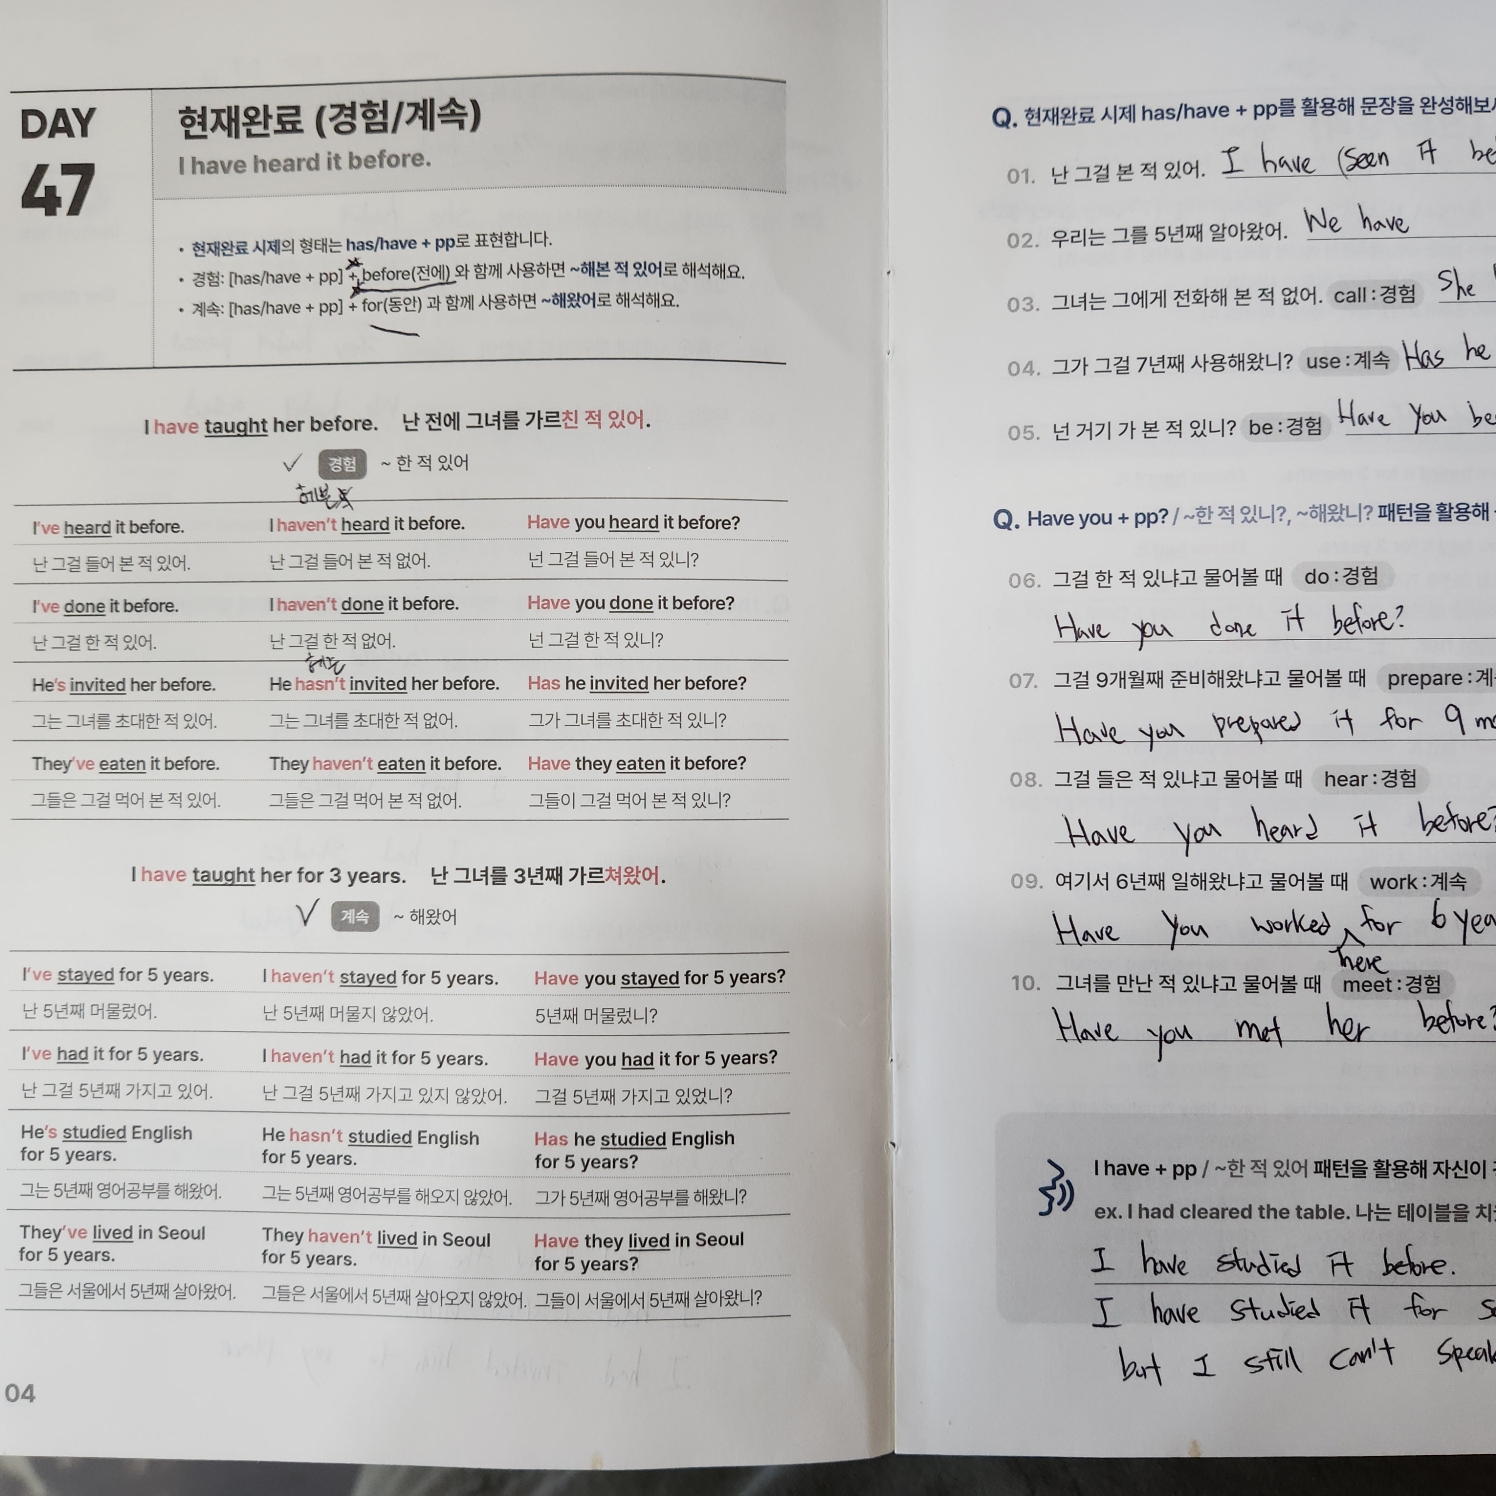 DAY
47
현재완료 (경험/계속)
I have heard it before.
• 현재완료 시제의 형태는 has/have + pp로 표현합니다.
• 경험: [has/have + pp] + before(전에) 와 함께 사용하면 ~해본 적 있어로 해석해요.
• 계속: [has/have + pp] + for(동안) 과 함께 사용하면 ~해왔어로 해석해요.
I have taught her before. 난 전에 그녀를 가르친 적 있어.
경험 ~ 한 적 있어
I've heard it before. I haven't heard it before. Have you heard it before?
난 그걸 들어 본 적 있어. 난 그걸 들어 본 적 없어. 넌 그걸 들어 본 적 있니?
I've done it before. I haven't done it before. Have you done it before?
난 그걸 한 적 있어. 난 그걸 한 적 없어. 넌 그걸 한 적 있니?
He's invited her before. He hasn't invited her before. Has he invited her before?
그는 그녀를 초대한 적 있어. 그는 그녀를 초대한 적 없어. 그가 그녀를 초대한 적 있니?
They've eaten it before. They haven't eaten it before. Have they eaten it before?
그들은 그걸 먹어 본 적 있어. 그들은 그걸 먹어 본 적 없어. 그들이 그걸 먹어 본 적 있니?
I have taught her for 3 years. 난 그녀를 3년째 가르쳐왔어.
계속 ~ 해왔어
I've stayed for 5 years. I haven't stayed for 5 years. Have you stayed for 5 years?
난 5년째 머물렀어. 난 5년째 머물지 않았어. 5년째 머물렀니?
I've had it for 5 years. I haven't had it for 5 years. Have you had it for 5 years?
난 그걸 5년째 가지고 있어. 난 그걸 5년째 가지고 있지 않았어. 그걸 5년째 가지고 있었니?
He's studied English He hasn't studied English Has he studied English
for 5 years. for 5 years. for 5 years?
그는 5년째 영어공부를 해왔어. 그는 5년째 영어공부를 해오지 않았어. 그가 5년째 영어공부를 해왔니?
They've lived in Seoul They haven't lived in Seoul Have they lived in Seoul
for 5 years. for 5 years. for 5 years?
그들은 서울에서 5년째 살아왔어. 그들은 서울에서 5년째 살아오지 않았어. 그들이 서울에서 5년째 살아왔니?
04
Q. 현재완료 시제 has/have + pp를 활용해 문장을 완성해보
01. 난 그걸 본 적 있어. I have (seen it be
02. 우리는 그를 5년째 알아왔어. We have
03. 그녀는 그에게 전화해 본 적 없어. call : 경험 She
04. 그가 그걸 7년째 사용해왔니? use : 계속 Has he
05. 넌 거기 가 본 적 있니? be : 경험 Have you be
Q. Have you + pp? / ~한 적 있니?, ~해왔니? 패턴을 활용해
06. 그걸 한 적 있냐고 물어볼 때 do : 경험
Have you done it before?
07. 그걸 9개월째 준비해왔냐고 물어볼 때 prepare : 계
Have you prepared it for 9 mo
08. 그걸 들은 적 있냐고 물어볼 때 hear : 경험
Have you heard it before?
09. 여기서 6년째 일해왔냐고 물어볼 때 work : 계속
Have you worked for 6 yea
here
10. 그녀를 만난 적 있냐고 물어볼 때 meet : 경험
Have you met her before?
I have + pp / ~한 적 있어 패턴을 활용해 자신이
ex. I had cleared the table. 나는 테이블을 치
I have studied it before.
I have studied it for s
but I still can't speak